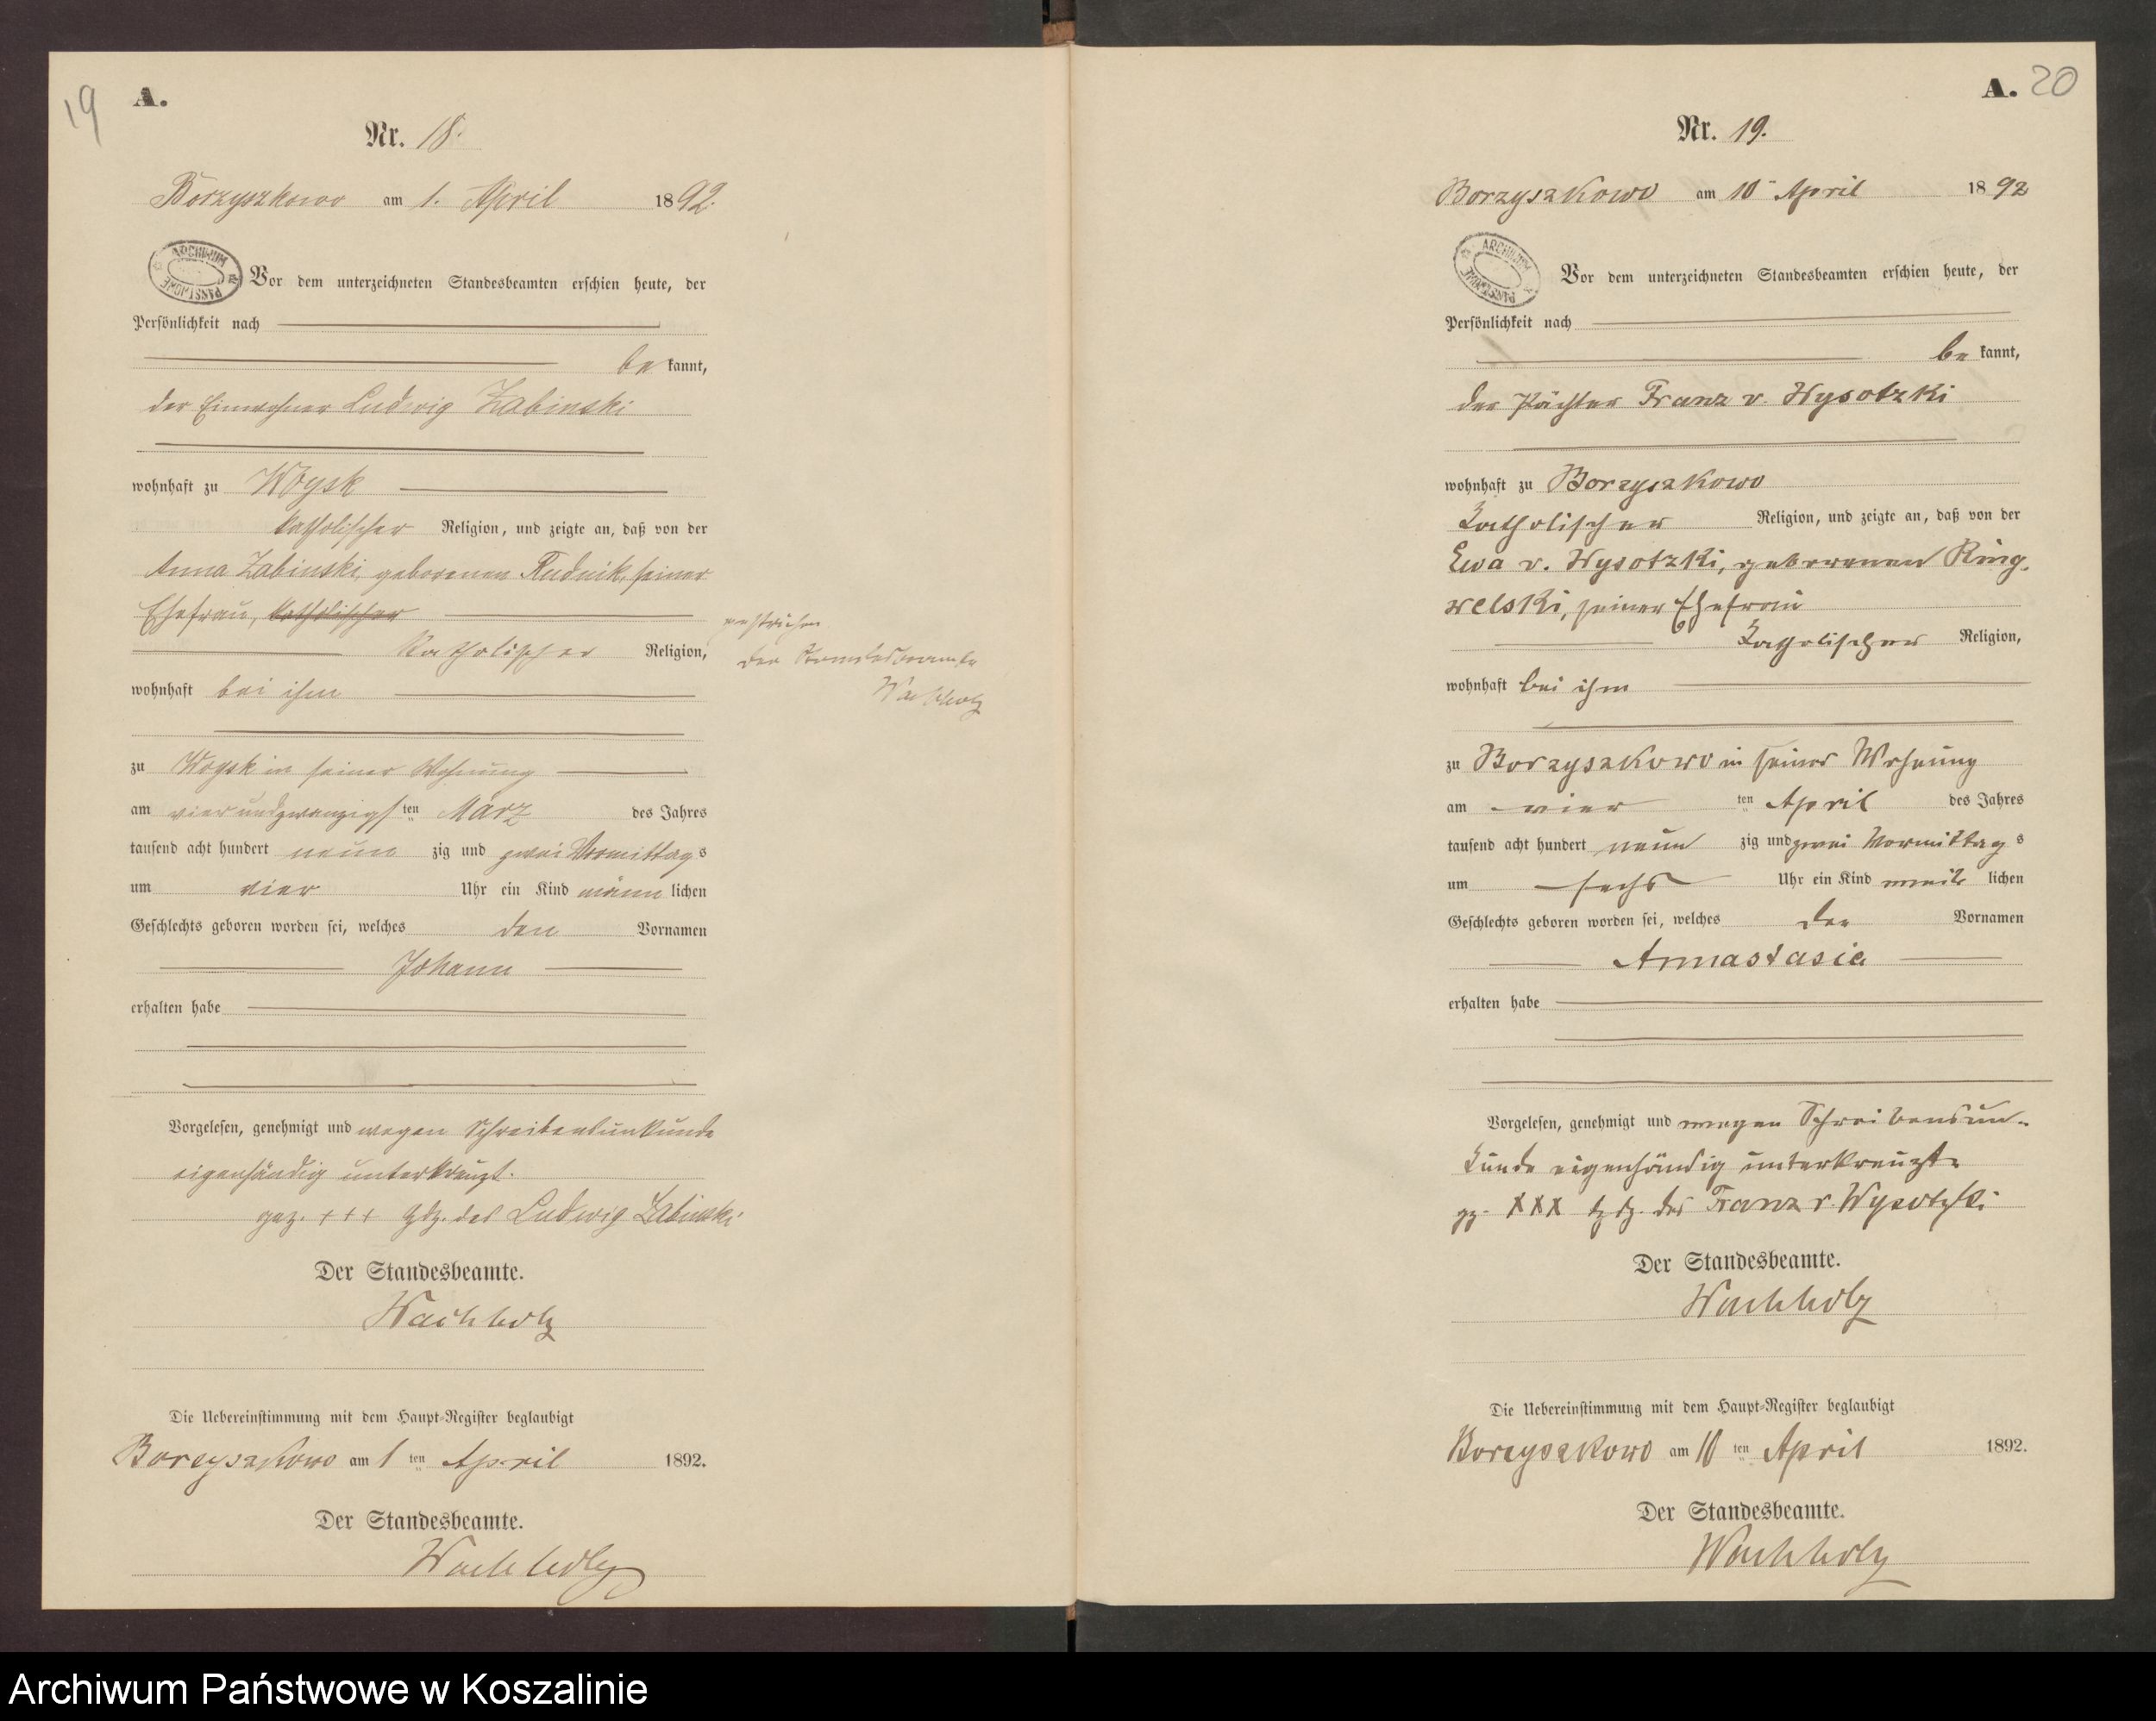 19
A.
Nr. 18.
Borzyszkowo am 1. April 1892.
ARCHIWUM PAŃSTWOWE
Vor dem unterzeichneten Standesbeamten erschien heute, der
Persönlichkeit nach
be kannt,
der Einwohner Ludwig Zabinski
wohnhaft zu Woysk
katholischer Religion, und zeigte an, daß von der
Anna Zabinski, geborenen Rudnik, seiner
Ehefrau, katholischer
katholischer Religion,
wohnhaft bei ihm
zu Woysk in seiner Wohnung
am vierundzwanzigsten März des Jahres
tausend acht hundert neun zig und zwei Vormittags
um vier Uhr ein Kind männ lichen
Geschlechts geboren worden sei, welches den Vornamen
Johann
erhalten habe
Vorgelesen, genehmigt und wegen Schreibensunkunde
eigenhändig unterkreuzt.
gez. +++ Hdz. des Ludwig Zabinski
Der Standesbeamte.
Wachholz
Die Uebereinstimmung mit dem Haupt-Register beglaubigt
Borzyszkowo am 1 ten April 1892.
Der Standesbeamte.
Wachholz
gestrichen.
Der Standesbeamte
Wachholz
A. 20
Nr. 19.
Borzyszkowo am 10 April 1892
ARCHIWUM PAŃSTWOWE
Vor dem unterzeichneten Standesbeamten erschien heute, der
Persönlichkeit nach
be kannt,
der Pächter Franz v. Wysotzki
wohnhaft zu Borzyszkowo
katholischer Religion, und zeigte an, daß von der
Ewa v. Wysotzki, geborenen Ring-
welski, seiner Ehefrau
katholischer Religion,
wohnhaft bei ihm
zu Borzyszkowo in seiner Wohnung
am vier ten April des Jahres
tausend acht hundert neun zig und zwei Vormittag s
um sechs Uhr ein Kind weib lichen
Geschlechts geboren worden sei, welches den Vornamen
Annastasia
erhalten habe
Vorgelesen, genehmigt und wegen Schreibensun-
kunde eigenhändig unterkreuzt.
gz. XXX Hdz. des Franz v. Wysotzki
Der Standesbeamte.
Wachholz
Die Uebereinstimmung mit dem Haupt-Register beglaubigt
Borzyszkowo am 10 ten April 1892.
Der Standesbeamte.
Wachholz
Archiwum Państwowe w Koszalinie